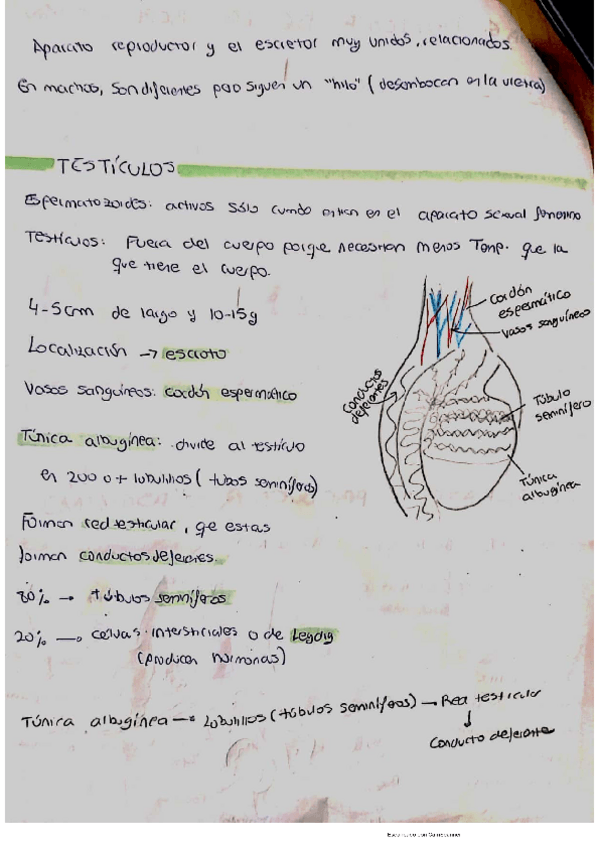 Aparato reproductor y el escretor muy unidos, relacionados.
En machos, son diferentes pero siguen un "hilo" (desembocan en la uretra)
TESTÍCULOS
Espermatozoides: activos sólo cuando entran en el aparato sexual femenino
Testículos: Fuera del cuerpo porque necesitan menos Temp. que la
que tiene el cuerpo.
4-5cm de largo y 10-15g
Localización → escroto
Vasos sanguíneos: cordón espermático
Túnica albugínea: divide al testículo
en 200 o + lobulillos (tubos seminíferos)
Forman red testicular, qe estas
forman conductos deferentes.
80% → túbulos seminíferos
20% → células intersticiales o de Leydig
(producen hormonas)
Túnica albugínea → Lobulillos (túbulos seminíferos) → Red testicular
↓
Conducto deferente
Cordón
espermático
Vasos sanguíneos
Conductos
deferentes
Túbulo
seminífero
Túnica
albugínea
Escaneado con CamScanner